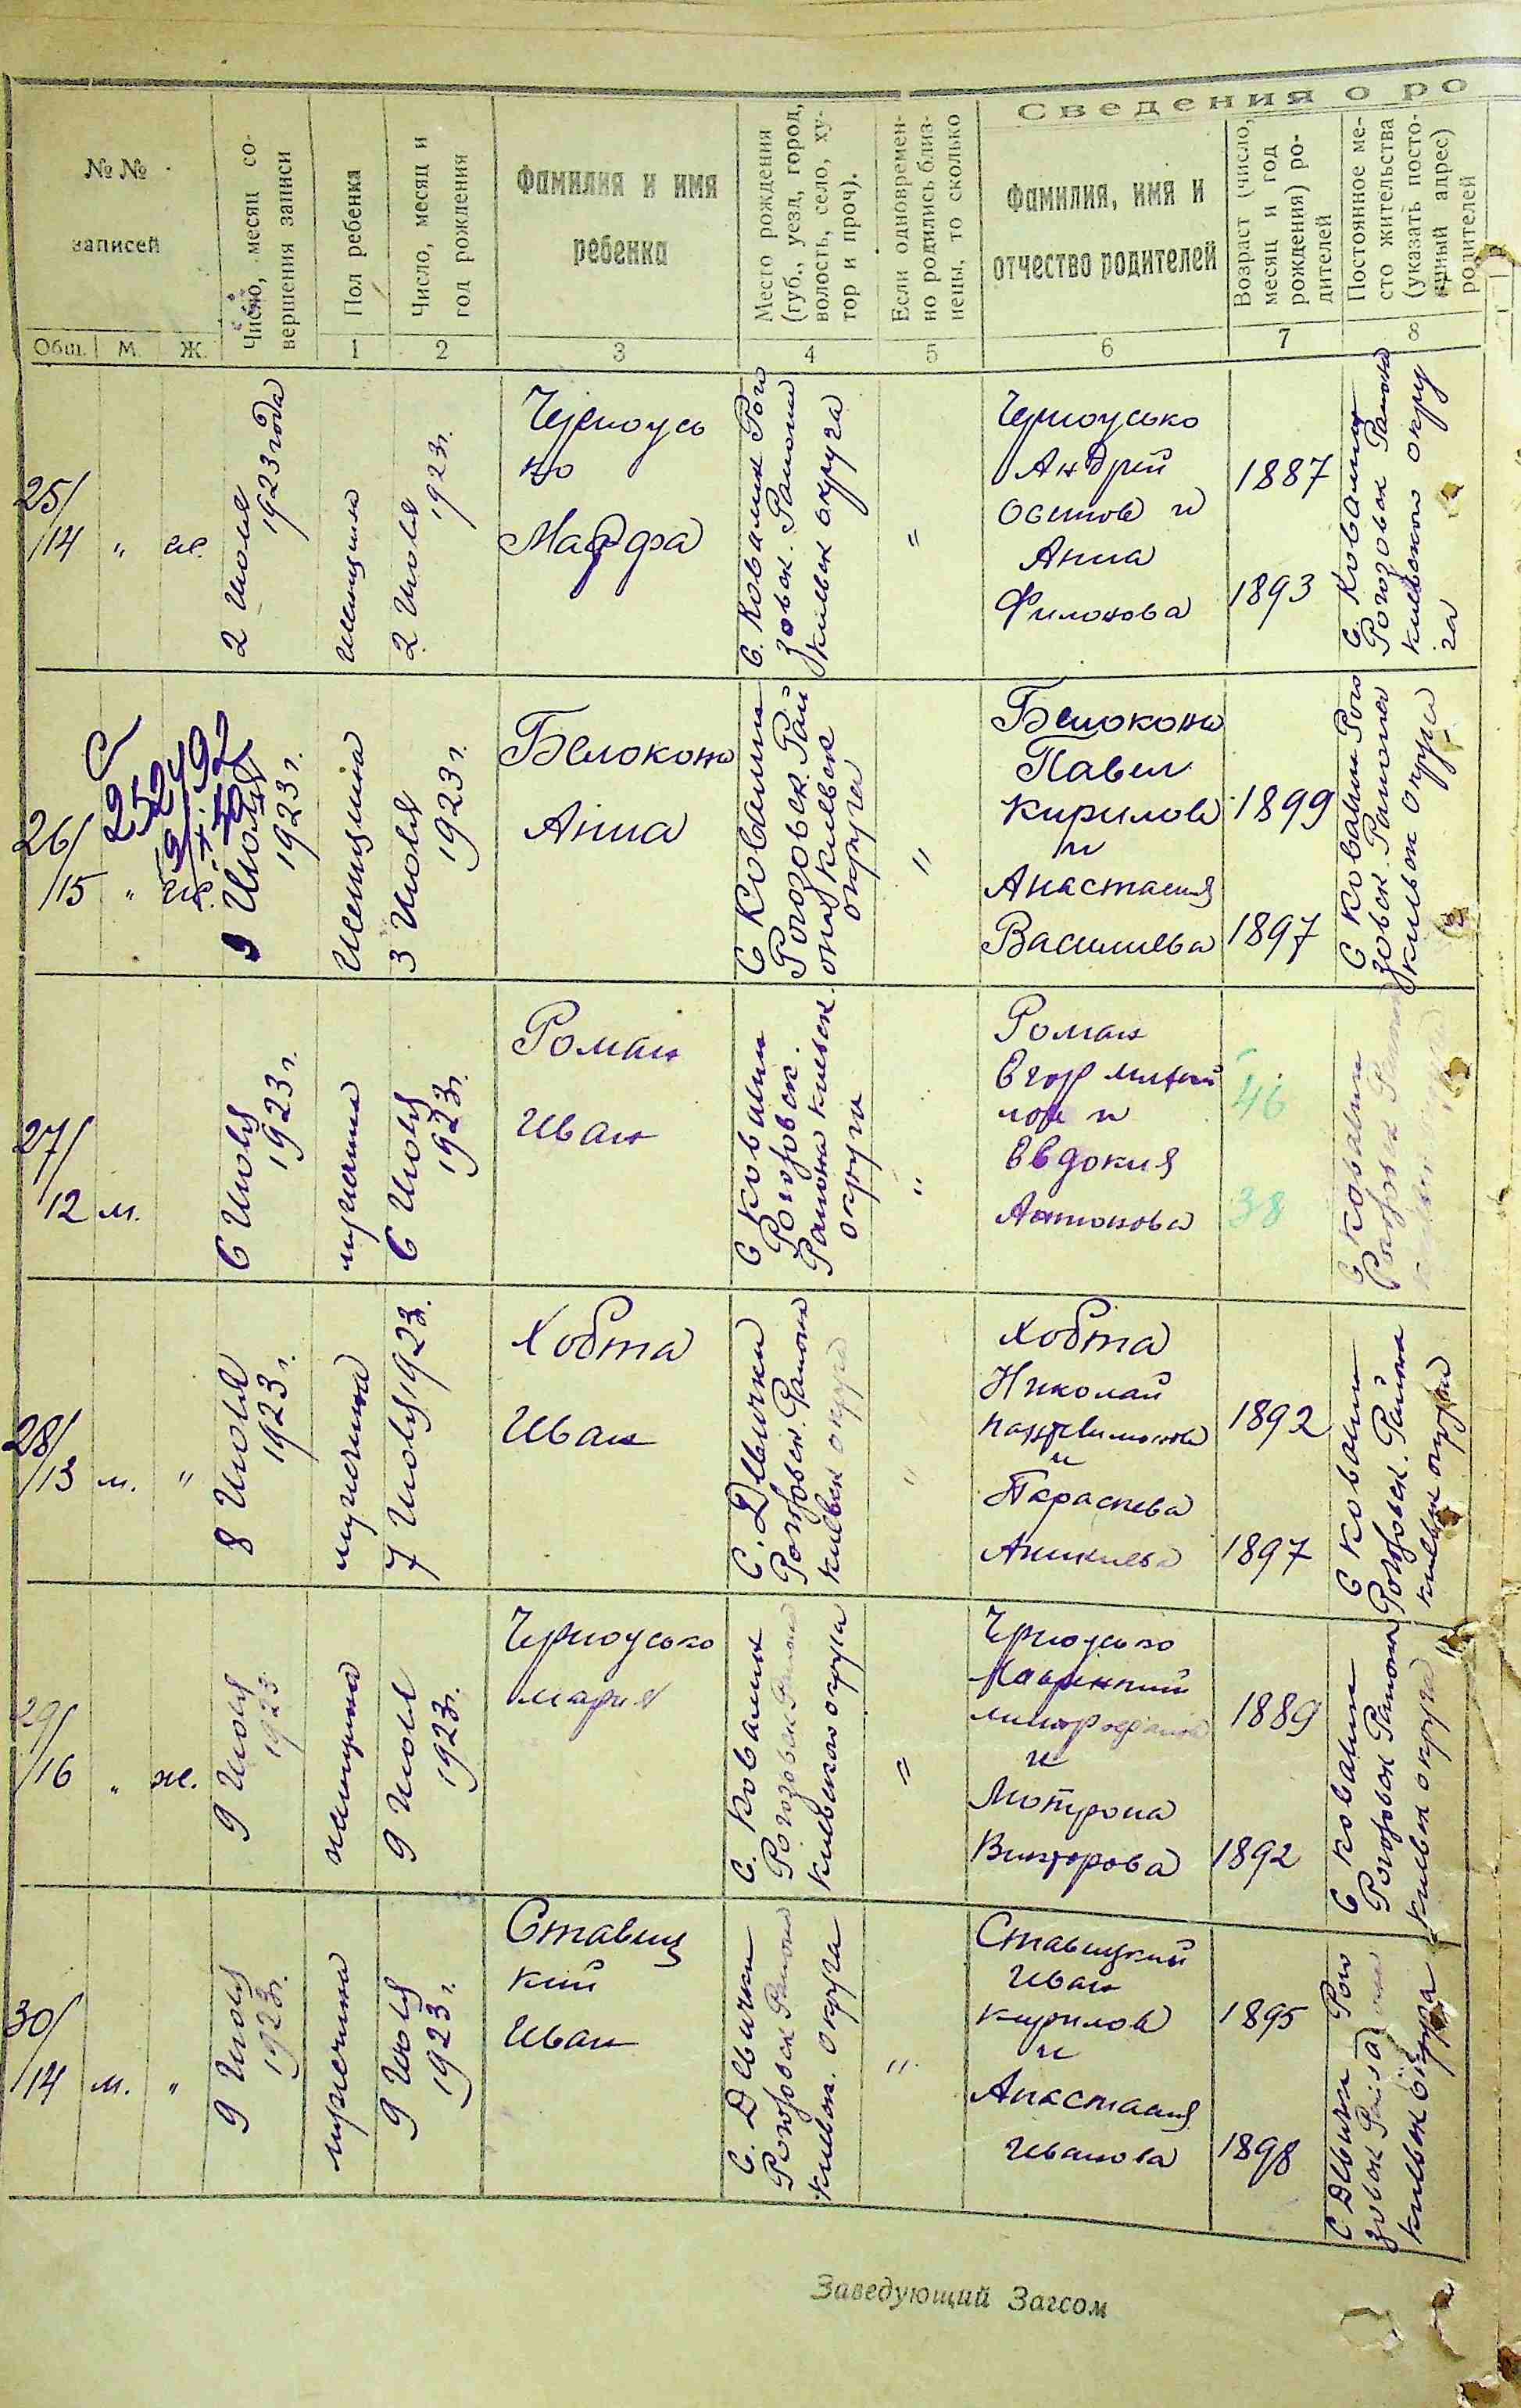 Сведения о ро
№№
записей
Общ.
М.
Ж.
Число, месяц со-
вершения записи
Пол ребенка
1
Число, месяц и
год рождения
2
Фамилия и имя
ребенка
3
Место рождения
(губ., уезд, город,
волость, село, ху-
тор и проч).
4
Если одновремен-
но родились близ-
нецы, то сколько
5
Фамилия, имя и
отчество родителей
6
Возраст (число,
месяц и год
рождения) ро-
дителей
7
Постоянное ме-
сто жительства
(указать посто-
янный адрес)
родителей
8
25/
/14
"
ж.
2 Июля
1923 года
Женщина
2 Июля
1923 г.
Черноусь
ко
Марфа
С. Ковалин Рого
зовск. Района
Киевск округа
"
Черноусько
Андрей
Осипов и
Анна
Филонова
1887
1893
С. Ковалин
Рогозовск Района
Киевского окру
га
26/
/15
"
ж.
252492
Июля
1923 г.
Женщина
3 Июля
1923 г.
Белоконь
Анна
С Ковалин
Рогозовск. Рай
она Киевск
округа
"
Белоконь
Павел
Кирилов
и
Анастасия
Василиева
1899
1897
С Ковалин Рого
зовск. Района
Киевск округа
27/
/12
м.
6 Июля
1923 г.
мужчина
6 Июля
1923 г.
Роман
Иван
С Ковалин
Рогозовск.
Района Киевск.
округа
"
Роман
Егор
и
Евдокия
Антонова
46
38
С Ковалин
Рогозовск Района
28/
/13
м.
"
8 Июля
1923 г.
мужчина
7 Июля 1923 г.
Хобта
Иван
С. Девички
Рогозовск. Района
Киевск округа
"
Хобта
Николай
и
Параскева
Аникиева
1892
1897
С Ковалин
Рогозовск. Района
Киевск округа
29/
/16
"
ж.
9 Июля
1923
женщина
9 Июля
1923 г.
Черноусько
Мария
С. Ковалин
Рогозовск Района
Киевского округа
"
Черноусько
Лаврентий
Митрофанов
и
Мотрона
Викторова
1889
1892
С Ковалин
Рогозовск Района
Киевск округа
30/
/14
м.
"
9 Июля
1923 г.
мужчина
9 Июля
1923 г.
Ставиц
кий
Иван
С. Девички
Рогозовск Района
Киевск. округа
"
Ставицкий
Иван
Кирилов
и
Анастасия
Иванова
1895
1898
С Девички Рого
зовск Района
Киевск округа
Заведующий Загсом